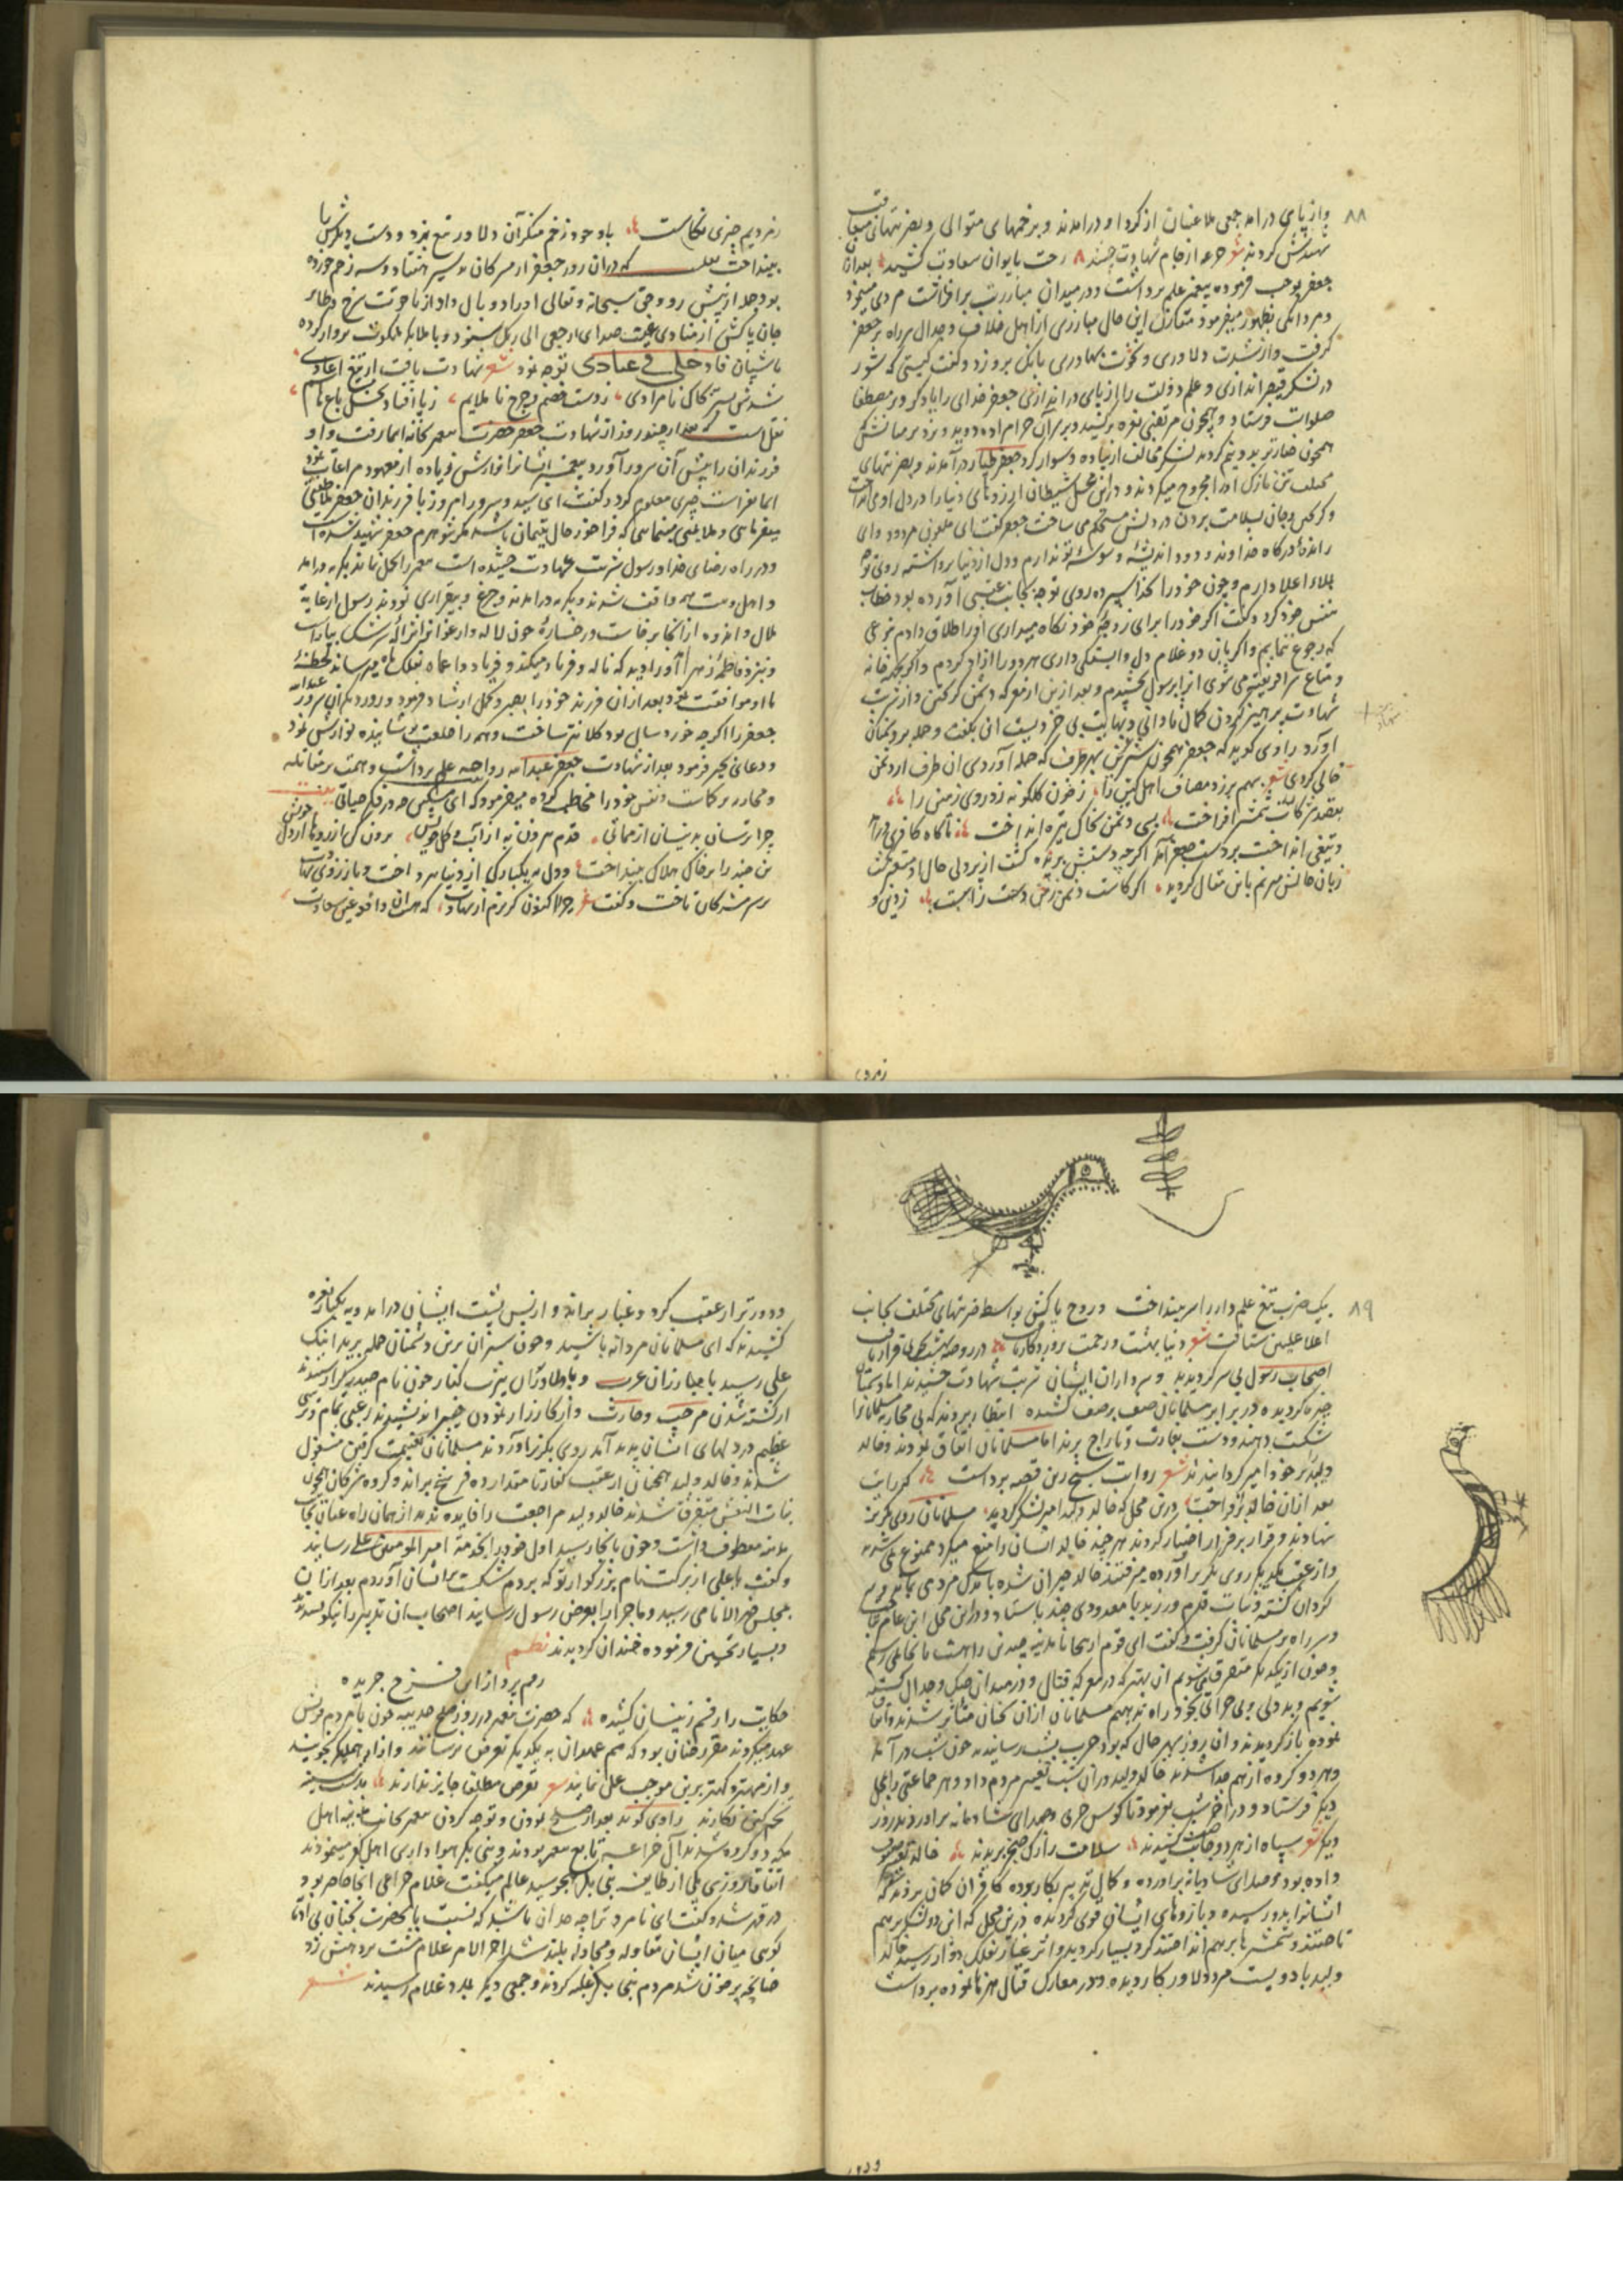 ۸۸
واز پای درآمد جمعی ملاعنان از کرد او درآمدند و بزخمهای متوالی و بضربتهای متعاقب
شهیدش کردند شعر جرعه از جام شهادت چشید رخت بایوان سعادت کشید بعد ازان
جعفر بموجب فرموده پیغمبر علم برداشت و در میدان مبارزت برافراشت مردمی مینمود
و مردانکی بظهور میفرمود مقارن این حال مبارزی از اهل خلاف و جدال سر راه بر جعفر
کرفت واز شدت دلاوری و نخوت بهادری بانک برو زد و کفت کیستی که شور
در لشکر قیصر اندازی و علم دولت را از پای در اندازی جعفر خدای را یاد کرد و بر مصطفا
صلوات فرستاد و همچون مرتضی نعره برکشید و بر سر آن حرامزاده دوید و بزد بر میانش
همچون خیار تر بدو نیم کرد لشکر مخالف از پیاده و سوار کرد جعفر طیار درآمدند و بضربتهای
مختلف تن نازک اورا مجروح میکردند و در این محل شیطان آرزوهای دنیا را در دل او می انداخت
و جان بسلامت بردن در دلش مستحکم می ساخت جعفر کفت ای ملعون مردود وای
رانده درکاه خداوند ودود اندیشه و وسوسه تو ندارم و دل از دنیا برداشتم روی توجه
بملاء اعلا دارم و چون خود را بخدا سپرده روی توجه بجانب عقبی آورده بود خطاب
بنفس خود کرد و کفت اکر خود را برای زوجه خود نکاه میداری او را طلاق دادم نوعی
که رجوع ننمایم واکر بآن دو غلام دل وابستکی داری هر دو را آزاد کردم واکر بخانه
و متاع سرا فریفته می شوی آنرا برسول بخشیدم و بعد ازین از معرکه دشمن کریختن و از شربت
شهادت پرهیز کردن کمال نادانی و نهایت بی خردیست این بکفت و حمله بر دشمنان
آورد راوی کوید که جعفر همچون شیر نر بهر طرف که حمله آوردی آن طرف از دشمن
خالی کردی شعر بهم برزد مصاف اهل کین را ز خون کلکونه زد روی زمین را
بقصد مشرکان شمشیر افراخت بسی دشمن بخاک تیره انداخت ناکاه کافری درآمد
و تیغی انداخت بر دست جعفر آمد اکرچه دستش بریده کشت از پر دلی حال او متغیر نکشت
زبان حالش مترنم باین مقال کردید اکر کاست دشمن زمن دست راست
زدیم
زمردیم چیزی نکاست باوجود زخم منکر آن دلاور تیغ بزد و دست دیکرش را
بینداخت نقلست که در آن روز جعفر از مشرکان بد سیر هفتاد و سه زخم خورده
بود جمله از پیش رو و حق سبحانه و تعالی او را دو بال داد از یاقوت سرخ و طائر
جان پاکش از منادی غیبت صدای ارجعی الی ربک شنود و با ملائکه ملکوت پرواز کرده
باشیان فادخلی فی عبادی توجه نمود شعر شهادت یافت از تیغ اعادی
شدش بستر خاک نامرادی ز دست خصم و جرح ناملایم ز پا افتاد نخل باغ هاشم
نقلست که بعد از چند روز از شهادت جعفر حضرت پیغمبر بخانه اسما رفت و او
فرزندان را پیش آن سرور آورد پیغمبر ایشانرا نوازش زیاده از معهود مراعات نمود
اسما بفراست چیزی معلوم کرد و کفت ای سید و سرور امروز با فرزندان جعفر ملاطفتی
میفرمائی و ملایمتی مینمائی که فراخور حال یتیمان باشد مکر شوهرم جعفر شهید شده است
و در راه رضای خدا و رسول شربت شهادت چشیده است پیغمبر را تحمل نماند بکریه درآمد
و اهل بیت همه واقف شدند و بکریه درآمدند و جزع و بیقراری نمودند رسول از غایت
ملال و اندوه از آنجا برخاست و رخساره چون لاله و ارغوان از ژاله سرشک بیاراست
و بنزد فاطمه زهرا آورد دید که ناله و فریاد میکند و فریاد واعماه بفلک ماه میرساند لحظه
با او موافقت نمود بعد ازان فرزند خود را بصبر و تحمل ارشاد فرمود و روز دیکر آن سرور عبدالله
جعفر را اکرچه خورد سال بود کلانتر ساخت و همه را خلعت پوشانیده نوازش نمود
و دعای خیر فرمود بعد از شهادت جعفر عبدالله رواحه علم برداشت و همت بر مقاتله
و محاربه بر کماشت و نفس خود را مخاطب کرده میفرمود که ای مسکین چه در فکر حیاتی
چرا ترسان بدینسان از مماتی قدم بیرون نه از آب و کل خویش برون کن آرزوها از دل خویش
تن خود را بر خاک هلاک بینداخت و دل بیکبارکی از دنیا بپرداخت و باز
بر سر مشرکان تاخت و کفت شعر چرا اکنون کریزم از شهادت که هست آن دافع غین سعادت
۸۹
بیک ضرب تیغ علمدار را سر بینداخت و روح پاکش بواسطه ضربتهای مختلف بجانب
اعلا علیین شتافت شعر ز دنیا بهشت و رحمت پروردکار یافت در روضه بهشت قرار یافت
اصحاب رسول بی سر کردیدند و سرداران ایشان شربت شهادت چشیدند اما دشمنان
خیره کردیده در برابر مسلمانان صف بر صف کشیده انتظار میبردند که بی محاربه مسلمانانرا
شکست دهند و دست بغارت و تاراج برند اما مسلمانان اتفاق نمودند و خالد
ولید را بر خود امیر کردانیدند شعر روایت سنج زین قصه پرداخت که رایت
بعد ازان خالد برافراخت درین محل که خالد ولید امیر لشکر کردید مسلمانان روی بکریز
نهادند و قرار بر فرار اختیار کردند هر چند خالد ایشان را منع میکرد ممنوع نمی شدند
واز عقب یکدیکر روی بکریز آورده میرفتند خالد حیران شده با اندک مردمی بماند و سر
کردان کشته و ثبات قدم ورزیده با معدودی چند باستاد و در این محل ابن عامر بتاخت
و سر راه بر مسلمانان کرفت و کفت ای قوم از اینجا تا مدینه چندین راهست تا بآنجا می رسیم
و چون از یکدیکر متفرق میشویم آن بهتر که در معرکه قتال و در میدان جنک و جدال کشته
شویم و بددلی و بی جراتی بخود راه ندهیم مسلمانان ازان سخنان متاثر شدند و اتفاق
نموده باز کردیدند و آن روز بهر حال که بود حرب بشب رسانیدند چون شب درآمد
و هر دو کروه از هم جدا شدند خالد ولید در آن شب تغییر مردم داد و هر جماعتی را بمحل
دیکر فرستاد و در آخر شب بفرمود تا کوس حربی و صدای شادیانه برآوردند روز
دیکر شعر سپاه از هر دو جانب صف کشیدند سلامت را رک صبح بریدند خالد تغییر صفوف
داده بود و صدای شادیانه برآورده و کمال تدبیر بکار بوده کافران کمان بردند که
ایشانرا مدد رسیده و بازوهای ایشان قوی کردیده درین محل که این دو لشکر بر هم
تاختند و شمشیرها بر هم انداختند کرد بسیار کردید و اثر غبار بفلک دوار رسید خالد
ولید با دویست مرد دلاور کاردیده و در معارک قتال هنرها نموده برداشت
و دورتر از عقب کرد و غبار براند و از پس پشت ایشان درآمد و بیکبار نعره
کشیدند که ای مسلمانان مردانه باشید و چون شیران برین دشمنان حمله برید اینک
علی رسید با مبارزان عرب و با دلاوران یثرب کفار چون نام حیدر کرار شنیدند
از کشته شدن مرحب و حارث و از کارزار نمودن خیبر اندیشیدند رعبی تمام و ترسی
عظیم در دلهای ایشان پدید آمد روی بکریز آوردند مسلمانان بغنیمت کرفتن مشغول
شدند و خالد ولید همچنان از عقب کفار تا مقدار ده فرسخ براند و کروه مشرکان همچون
بنات النعش متفرق شدند خالد ولید مراجعت را فایده ندید از همان راه عنان بجانب
مدینه معطوف داشت و چون بآنجا رسید اول خود را بخدمت امیر المومنین علی رسانید
و کفت یا علی از برکت نام بزرکوار تو که بردم شکست بر ایشان آوردم بعد ازان
بمجلس خیر الانامی رسید و ماجرا را بعرض رسول رسانید اصحاب آن تدبیر را نیکو پسندیدند
و بسیار تحسین فرموده خندان کردیدند نظم
رقم پرداز این فرخ جریده
حکایت را رقم زینسان کشیده که حضرت پیغمبر در روز صلح حدیبیه چون با مردم قریش
عهد میکردند مقرر چنان بود که هم عهدان به یکدیکر تعرض نرسانند و آزار همدیکر نجویند
واز مهتر و کهتر برین موجب عمل نمایند شعر تعرض مطلقا جایز ندارند
تخم کین نکارند راوی کوید بعد از صلح نمودن و توجه کردن پیغمبر بجانب مدینه اهل
مکه دو کروه شدند آل خزاعه تابع پیغمبر بودند و بنی بکر هواداری اهل کفر مینمودند
اتفاقا روزی یکی از طایفه بنی بکر هجو سید عالم میکفت غلام خزاعی آنجا حاضر بود
در قهر شد و کفت ای نامرد ترا چه حد آن باشد که نسبت بآنحضرت چنان بی ادبانه
کوئی میان ایشان مقاوله و مجادله بلند شد آخر الامر غلام مشت بر دهنش زد
چنانچه پرخون شد مردم بنی بکر غلبه کردند و جمعی دیکر بمدد غلام رسیدند شعر